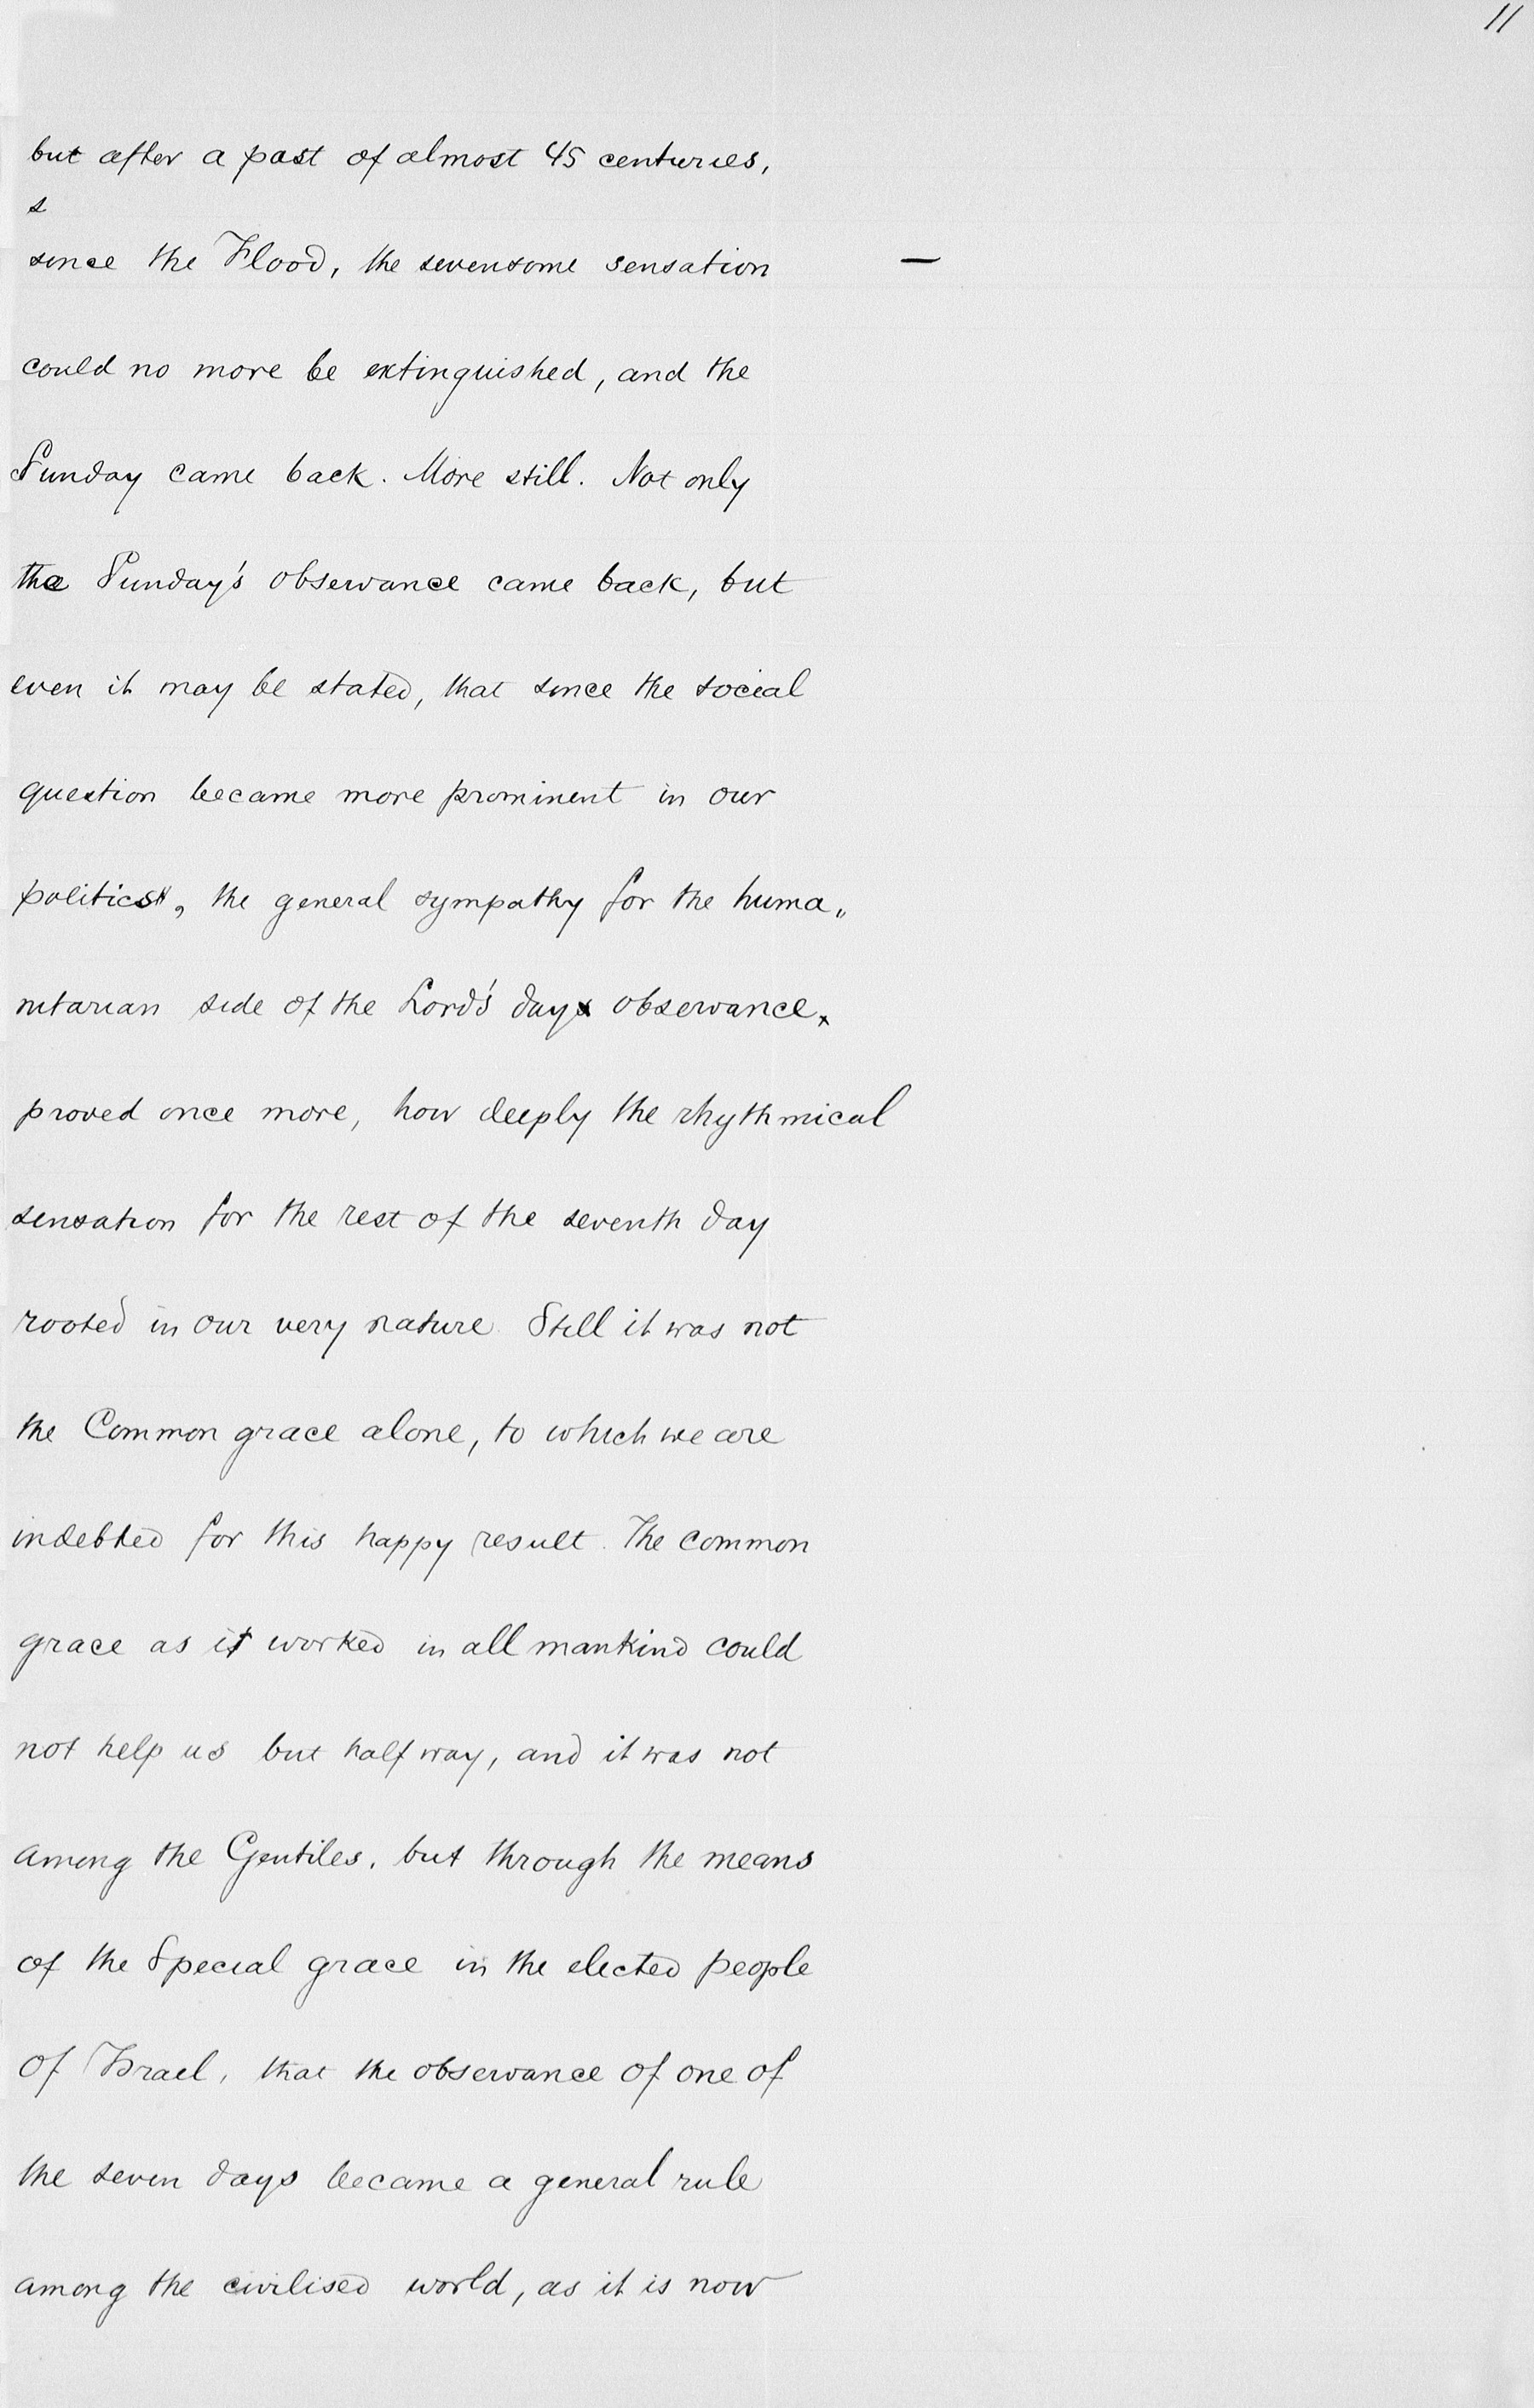 11
but after a past of almost 45 centuries,
s
since the Flood, the sevensome sensation —
could no more be extinguished, and the
Sunday came back. More still. Not only
the Sunday's observance came back, but
even it may be stated, that since the social
question became more prominent in our
politics, the general sympathy for the huma„
nitarian side of the Lord's day observance,
proved once more, how deeply the rhythmical
sensation for the rest of the seventh day
rooted in our very nature. Still it was not
the Common grace alone, to which we are
indebted for this happy result. The common
grace as it worked in all mankind could
not help us but half way, and it was not
among the Gentiles, but through the means
of the Special grace in the elected people
of Israel, that the observance of one of
the seven days became a general rule
among the civilised world, as it is now